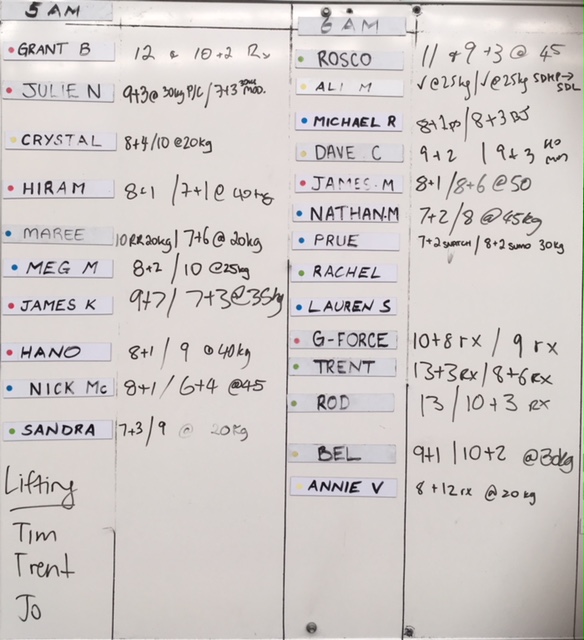 5 AM
GRANT B 12 & 10+2 Rx
JULIE N 9+3@30kg P/C / 7+3
CRYSTAL 8+4/10 @20kg
HIRAM 8+1 / 7+1 @ 40kg
MAREE 10RR20kg / 7+6 @ 20kg
MEG M 8+2 / 10 @25kg
JAMES K 9+7 / 7+3@35kg
HANO 8+1 / 9 @40kg
NICK Mc 8+1 / 6+4 @45
SANDRA 7+3 / 9 @ 20kg
Lifting
Tim
Trent
Jo
6 AM
ROSCO 11 & 9+3 @ 45
ALI M √@25kg / √@25kg SDHP→ SDL
MICHAEL R 8+1 / 8+3
DAVE C 9+2 | 9+3
JAMES.M 8+1 / 8+6 @50
NATHAN.M 7+2 / 8 @45kg
PRUE 7+2 SNATCH / 8+2 SUMO 30kg
RACHEL
LAUREN S
G-FORCE 10+8 rx / 9 rx
TRENT 13+3 RX / 8+6 RX
ROD 13 / 10+3 RX
BEL 9+1 / 10+2 @30kg
ANNIE V 8+12 rx @20kg